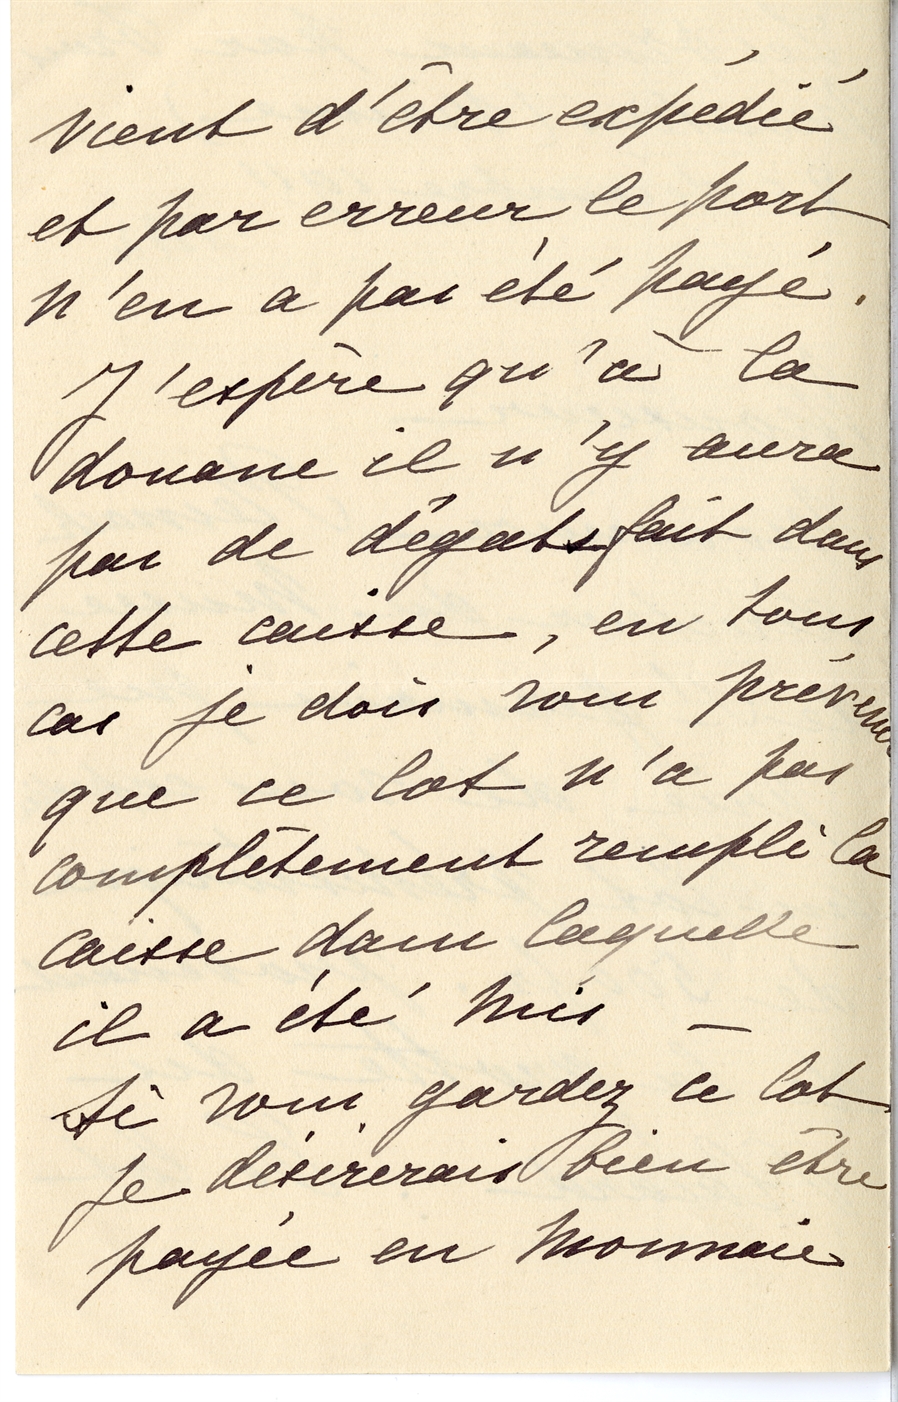 vient d'être expédié
et par erreur le port
n'en a pas été payé.
J'espère qu'à la
douane il n'y aura
pas de dégats fait dans
cette caisse, en tous
cas je dois vous prévenir
que ce lot n'a pas
complètement rempli la
caisse dans laquelle
il a été mis —
Si vous gardez ce lot
je désirerais bien être
payée en monnaie